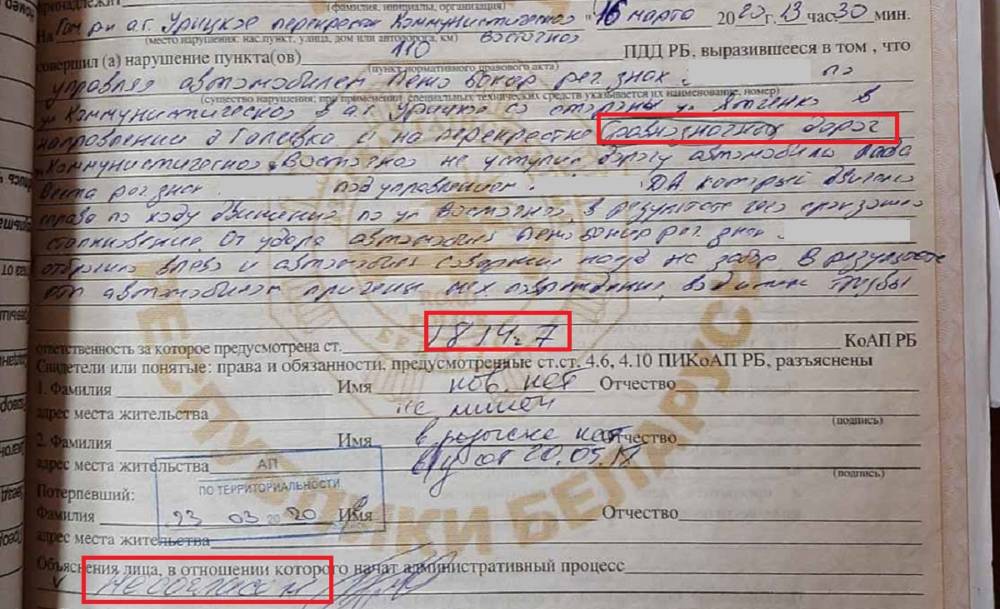 принадлежит
(фамилия, инициалы, организация)
На Гом р-н а.г. Урицкое перекресток Коммунистической "16" марта 2020 г. 13 час 30 мин.
(место нарушения: нас.пункт, улица, дом или автодорога, км) Восточной
совершил (а) нарушение пункта(ов) 110 ПДД РБ, выразившееся в том, что
(пункт нормативного правового акта)
управляя автомобилем Пежо рег. знак по
(существо нарушения; при применении специальных технических средств указывается их наименование, номер)
ул Коммунистической в а.г. Урицкое со стороны ул в
направлении д Галеевка и на перекрестке равнозначных дорог
Коммунистической Восточной не уступил дорогу автомобилю Лада
Веста рег. знак под управлением ДА который двигался
справа по ходу движения по ул Восточной, в результате чего произошло
столкновение. От удара автомобиль Пежо рег. знак
влево и автомобиль совершил наезд на забор. В результате
автомобилям причинены мех. повреждения,
ответственность за которое предусмотрена ст. 18 14 ч 7 КоАП РБ
Свидетели или понятые: права и обязанности, предусмотренные ст.ст. 4.6, 4.10 ПИКоАП РБ, разъяснены
1. Фамилия Имя нет Отчество
адрес места жительства не
(подпись)
2. Фамилия Имя в розыске нет Отчество
адрес места жительства в/у от 20.05.17
(подпись)
АП
ПО ТЕРРИТОРИАЛЬНОСТИ
Потерпевший:
Фамилия 23 03 2020 Имя Отчество
адрес места жительства
Объяснения лица, в отношении которого начат административный процесс
v не согласен
ЕСПУБЛИКИ БЕЛАРУСЬ